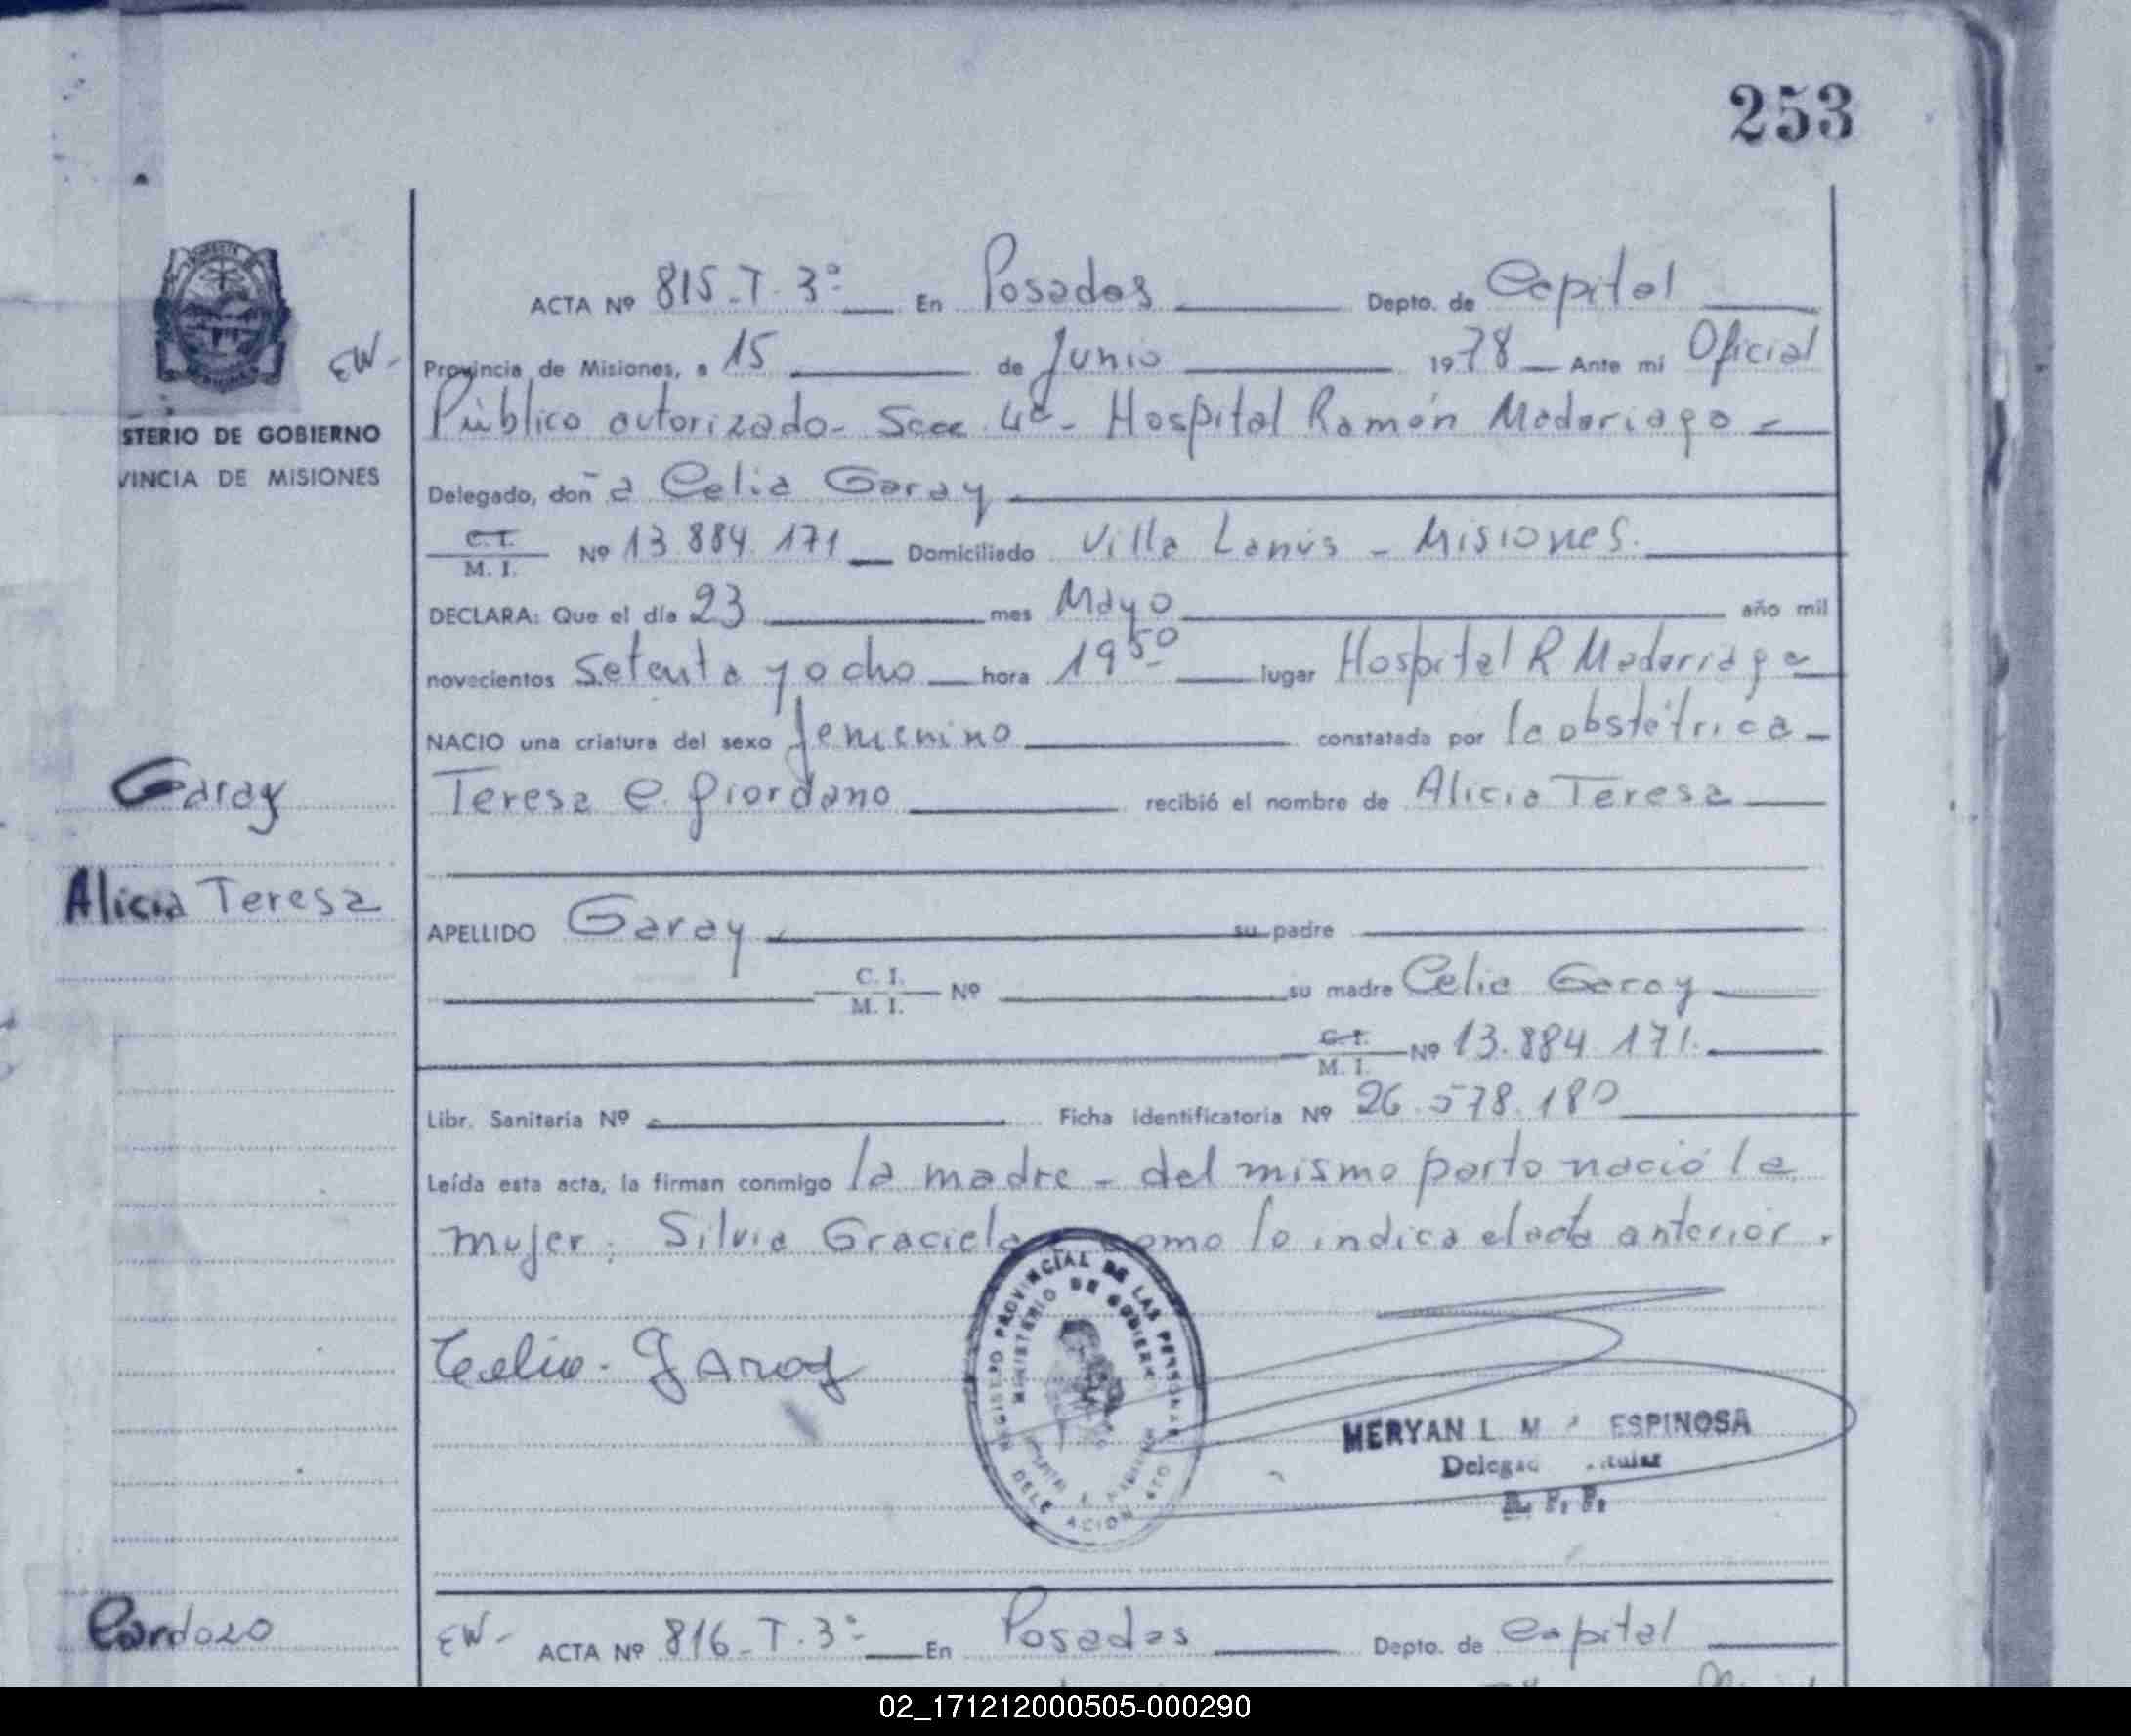 253
ACTA Nº 815-T.3º En Posadas Depto. de Capital
EW-
Provincia de Misiones, a 15 de Junio 1978 Ante mi Oficial
STERIO DE GOBIERNO
VINCIA DE MISIONES
Público autorizado- Secc 4ª- Hospital Ramón Madariaga -
Delegado, don ̃a Celia Garay
C.I. M. I. Nº 13.884.171 Domiciliado Villa Lanús - Misiones.
DECLARA: Que el día 23 mes Mayo año mil
novecientos setenta y ocho hora 19 50 lugar Hospital R Madariaga
NACIO una criatura del sexo femenino constatada por la obstétrica -
Garay
Teresa e. Giordano recibió el nombre de Alicia Teresa
Alicia Teresa
APELLIDO Garay su padre
C. I. M. I. Nº su madre Celia Garay
C.I. M. I. Nº 13.884.171.
Libr. Sanitaria Nº Ficha Identificatoria Nº 26.578.180
Leída esta acta, la firman conmigo la madre - del mismo parto nació la
mujer: Silvia Graciela como lo indica el acta anterior.
Celia Garay
REGISTRO PROVINCIAL DE LAS PERSONAS
MINISTERIO DE GOBIERNO
MERYAN L. ESPINOSA
Cardozo
EW- ACTA Nº 816-T.3º En Posadas Depto. de Capital
02_171212000505-000290